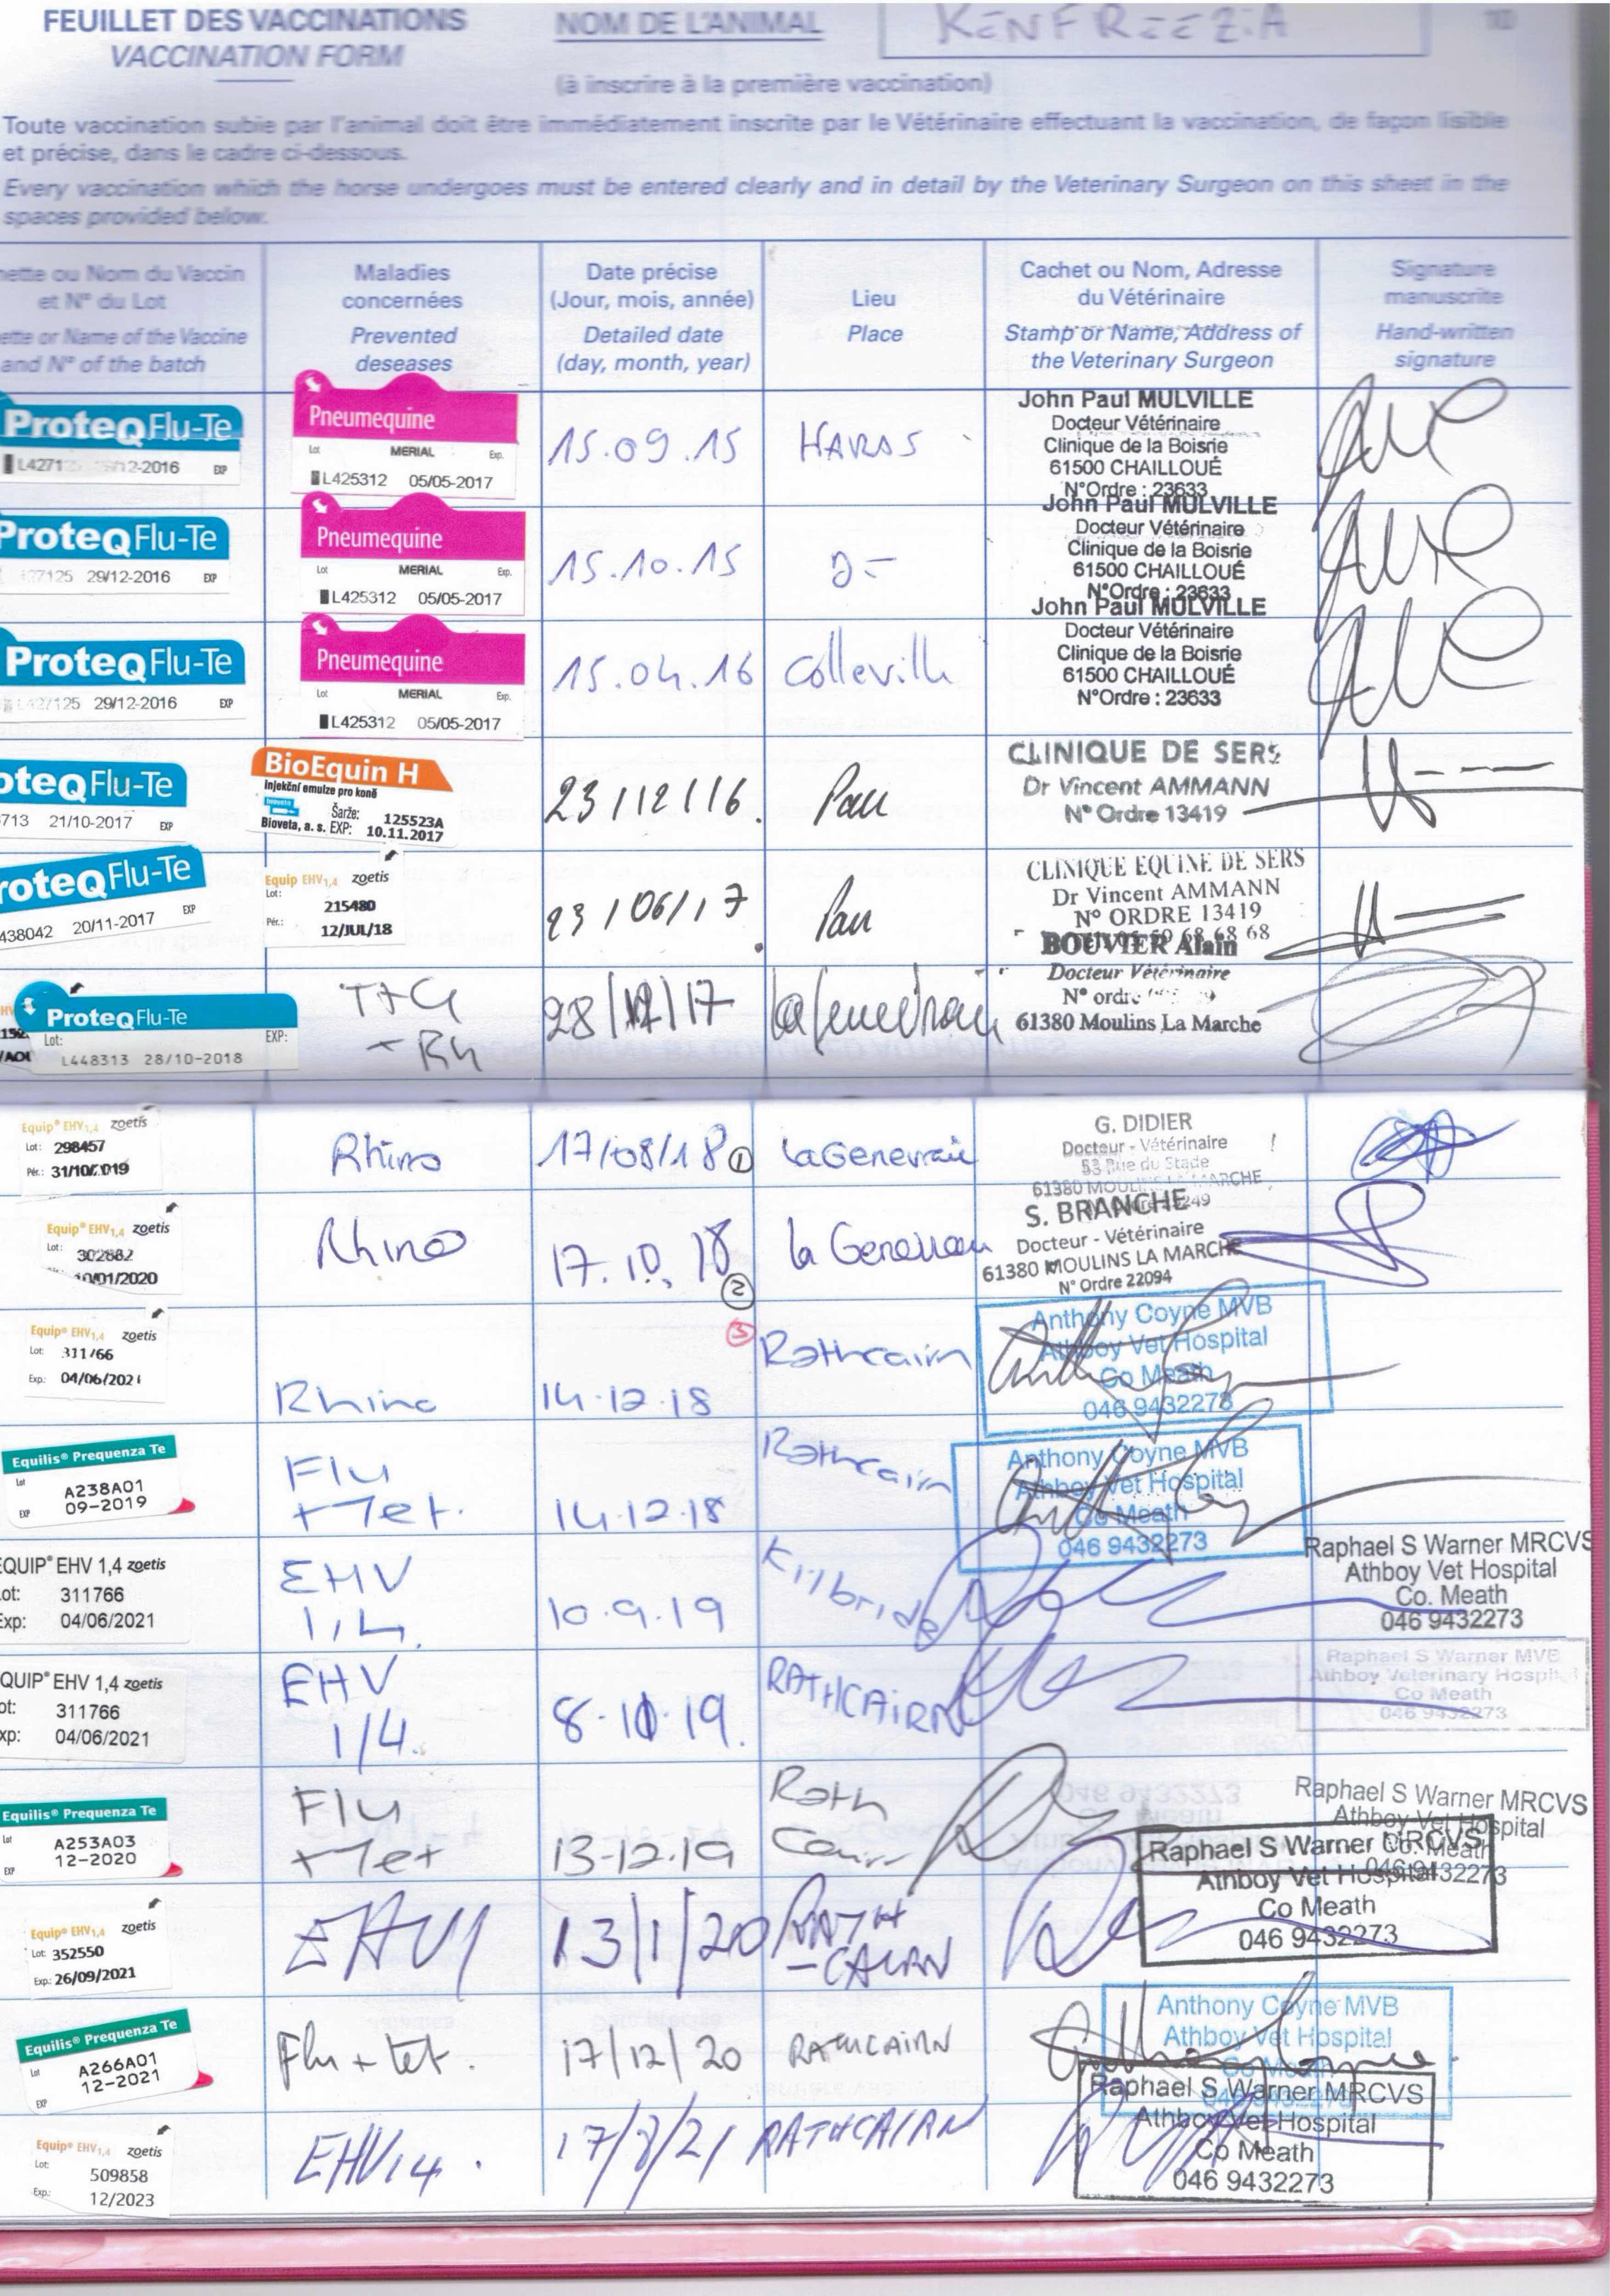 FEUILLET DES VACCINATIONS
VACCINATION FORM
NOM DE L'ANIMAL
KENFREEZIA
10
(à inscrire à la première vaccination)
Toute vaccination subie par l'animal doit être immédiatement inscrite par le Vétérinaire effectuant la vaccination, de façon lisible
et précise, dans le cadre ci-dessous.
Every vaccination which the horse undergoes must be entered clearly and in detail by the Veterinary Surgeon on this sheet in the
spaces provided below.
ou Nom du Vaccin
et N° du Lot
or Name of the Vaccine
and N° of the batch
Maladies
concernées
Prevented
deseases
Date précise
(Jour, mois, année)
Detailed date
(day, month, year)
Lieu
Place
Cachet ou Nom, Adresse
du Vétérinaire
Stamp or Name, Address of
the Veterinary Surgeon
Signature
manuscrite
Hand-written
signature
ProteqFlu-Te
12-2016 EXP
Pneumequine
Lot MERIAL Exp.
L425312 05/05-2017
15.09.15
HARAS
John Paul MULVILLE
Docteur Vétérinaire
Clinique de la Boisrie
61500 CHAILLOUÉ
N°Ordre : 23633
ProteqFlu-Te
29/12-2016 EXP
Pneumequine
Lot MERIAL Exp.
L425312 05/05-2017
15.10.15
John Paul MULVILLE
Docteur Vétérinaire
Clinique de la Boisrie
61500 CHAILLOUÉ
N°Ordre : 23633
ProteqFlu-Te
L427125 29/12-2016 EXP
Pneumequine
Lot MERIAL Exp.
L425312 05/05-2017
15.04.16
Colleville
John Paul MULVILLE
Docteur Vétérinaire
Clinique de la Boisrie
61500 CHAILLOUÉ
N°Ordre : 23633
oteqFlu-Te
713 21/10-2017 EXP
BioEquin H
Injekční emulze pro koně
bioveta
Šarže: 125523A
Bioveta, a. s. EXP: 10.11.2017
23/12/16.
Pau
CLINIQUE DE SERS
Dr Vincent AMMANN
N° Ordre 13419
roteqFlu-Te
438042 20/11-2017 EXP
Equip EHV1,4 zoetis
Lot:
215480
Pér.: 12/JUL/18
23/06/17
Pau
CLINIQUE EQUINE DE SERS
Dr Vincent AMMANN
N° ORDRE 13419
68 68 68
ProteqFlu-Te
Lot: EXP:
L448313 28/10-2018
T+G
- Rh
28/12/17
BOUVIER Alain
Docteur Vétérinaire
N° ordre
61380 Moulins La Marche
Equip® EHV1,4 zoetis
Lot: 298457
Pér.: 31/10/2019
Rhino
17/08/18 ①
La Genevraie
G. DIDIER
Docteur - Vétérinaire
53 Rue du Stade
61380 MOULINS LA MARCHE
Equip® EHV1,4 zoetis
Lot: 302882
10/01/2020
Rhino
17.10.18
②
S. BRANCHE
Docteur - Vétérinaire
61380 MOULINS LA MARCHE
N° Ordre 22094
Equip® EHV1,4 zoetis
Lot: 311766
Exp.: 04/06/2021
Rhino
③
14.12.18
Rathcairn
Anthony Coyne MVB
Athboy Vet Hospital
Co Meath
046 9432273
Equilis® Prequenza Te
Lot A238A01
EXP 09-2019
Flu
+ Tet.
14.12.18
Rathcairn
Anthony Coyne MVB
Athboy Vet Hospital
Co Meath
046 9432273
EQUIP® EHV 1,4 zoetis
ot: 311766
xp: 04/06/2021
EHV
1,4.
10.9.19
Kilbride
Raphael S Warner MRCVS
Athboy Vet Hospital
Co. Meath
046 9432273
QUIP® EHV 1,4 zoetis
ot: 311766
xp: 04/06/2021
EHV
1/4.
8.10.19.
RATHCAIRN
Raphael S Warner MVB
Athboy Veterinary Hospital
Co Meath
046 9432273
Equilis® Prequenza Te
Lot A253A03
EXP 12-2020
Flu
+Tet
13-12.19
Rath
Cairn
Raphael S Warner MRCVS
Athboy Vet Hospital
Co. Meath
046 9432273
Equip® EHV1,4 zoetis
Lot: 352550
Exp.: 26/09/2021
13/1/20
RATH
-CAIRN
Raphael S Warner MRCVS
Athboy Vet Hospital
Co Meath
046 9432273
Equilis® Prequenza Te
Lot A266A01
12-2021
EXP
Flu + tet.
17/12/20
RATHCAIRN
Anthony Coyne MVB
Athboy Vet Hospital
Co Meath
046 9432273
Equip® EHV1,4 zoetis
Lot: 509858
Exp.: 12/2023
EHV14.
RATHCAIRN
Raphael S Warner MRCVS
Athboy Vet Hospital
Co Meath
046 9432273